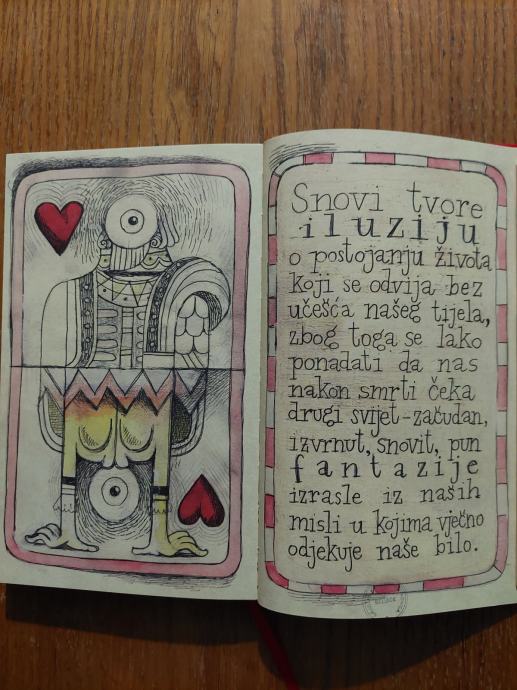 Snovi tvore
iluziju
o postojanju života
koji se odvija bez
učešća našeg tijela,
zbog toga se lako
ponadati da nas
nakon smrti čeka
drugi svijet-začudan,
izvrnut, snovit, pun
fantazije
izrasle iz naših
misli u kojima vječno
odjekuje naše bilo.